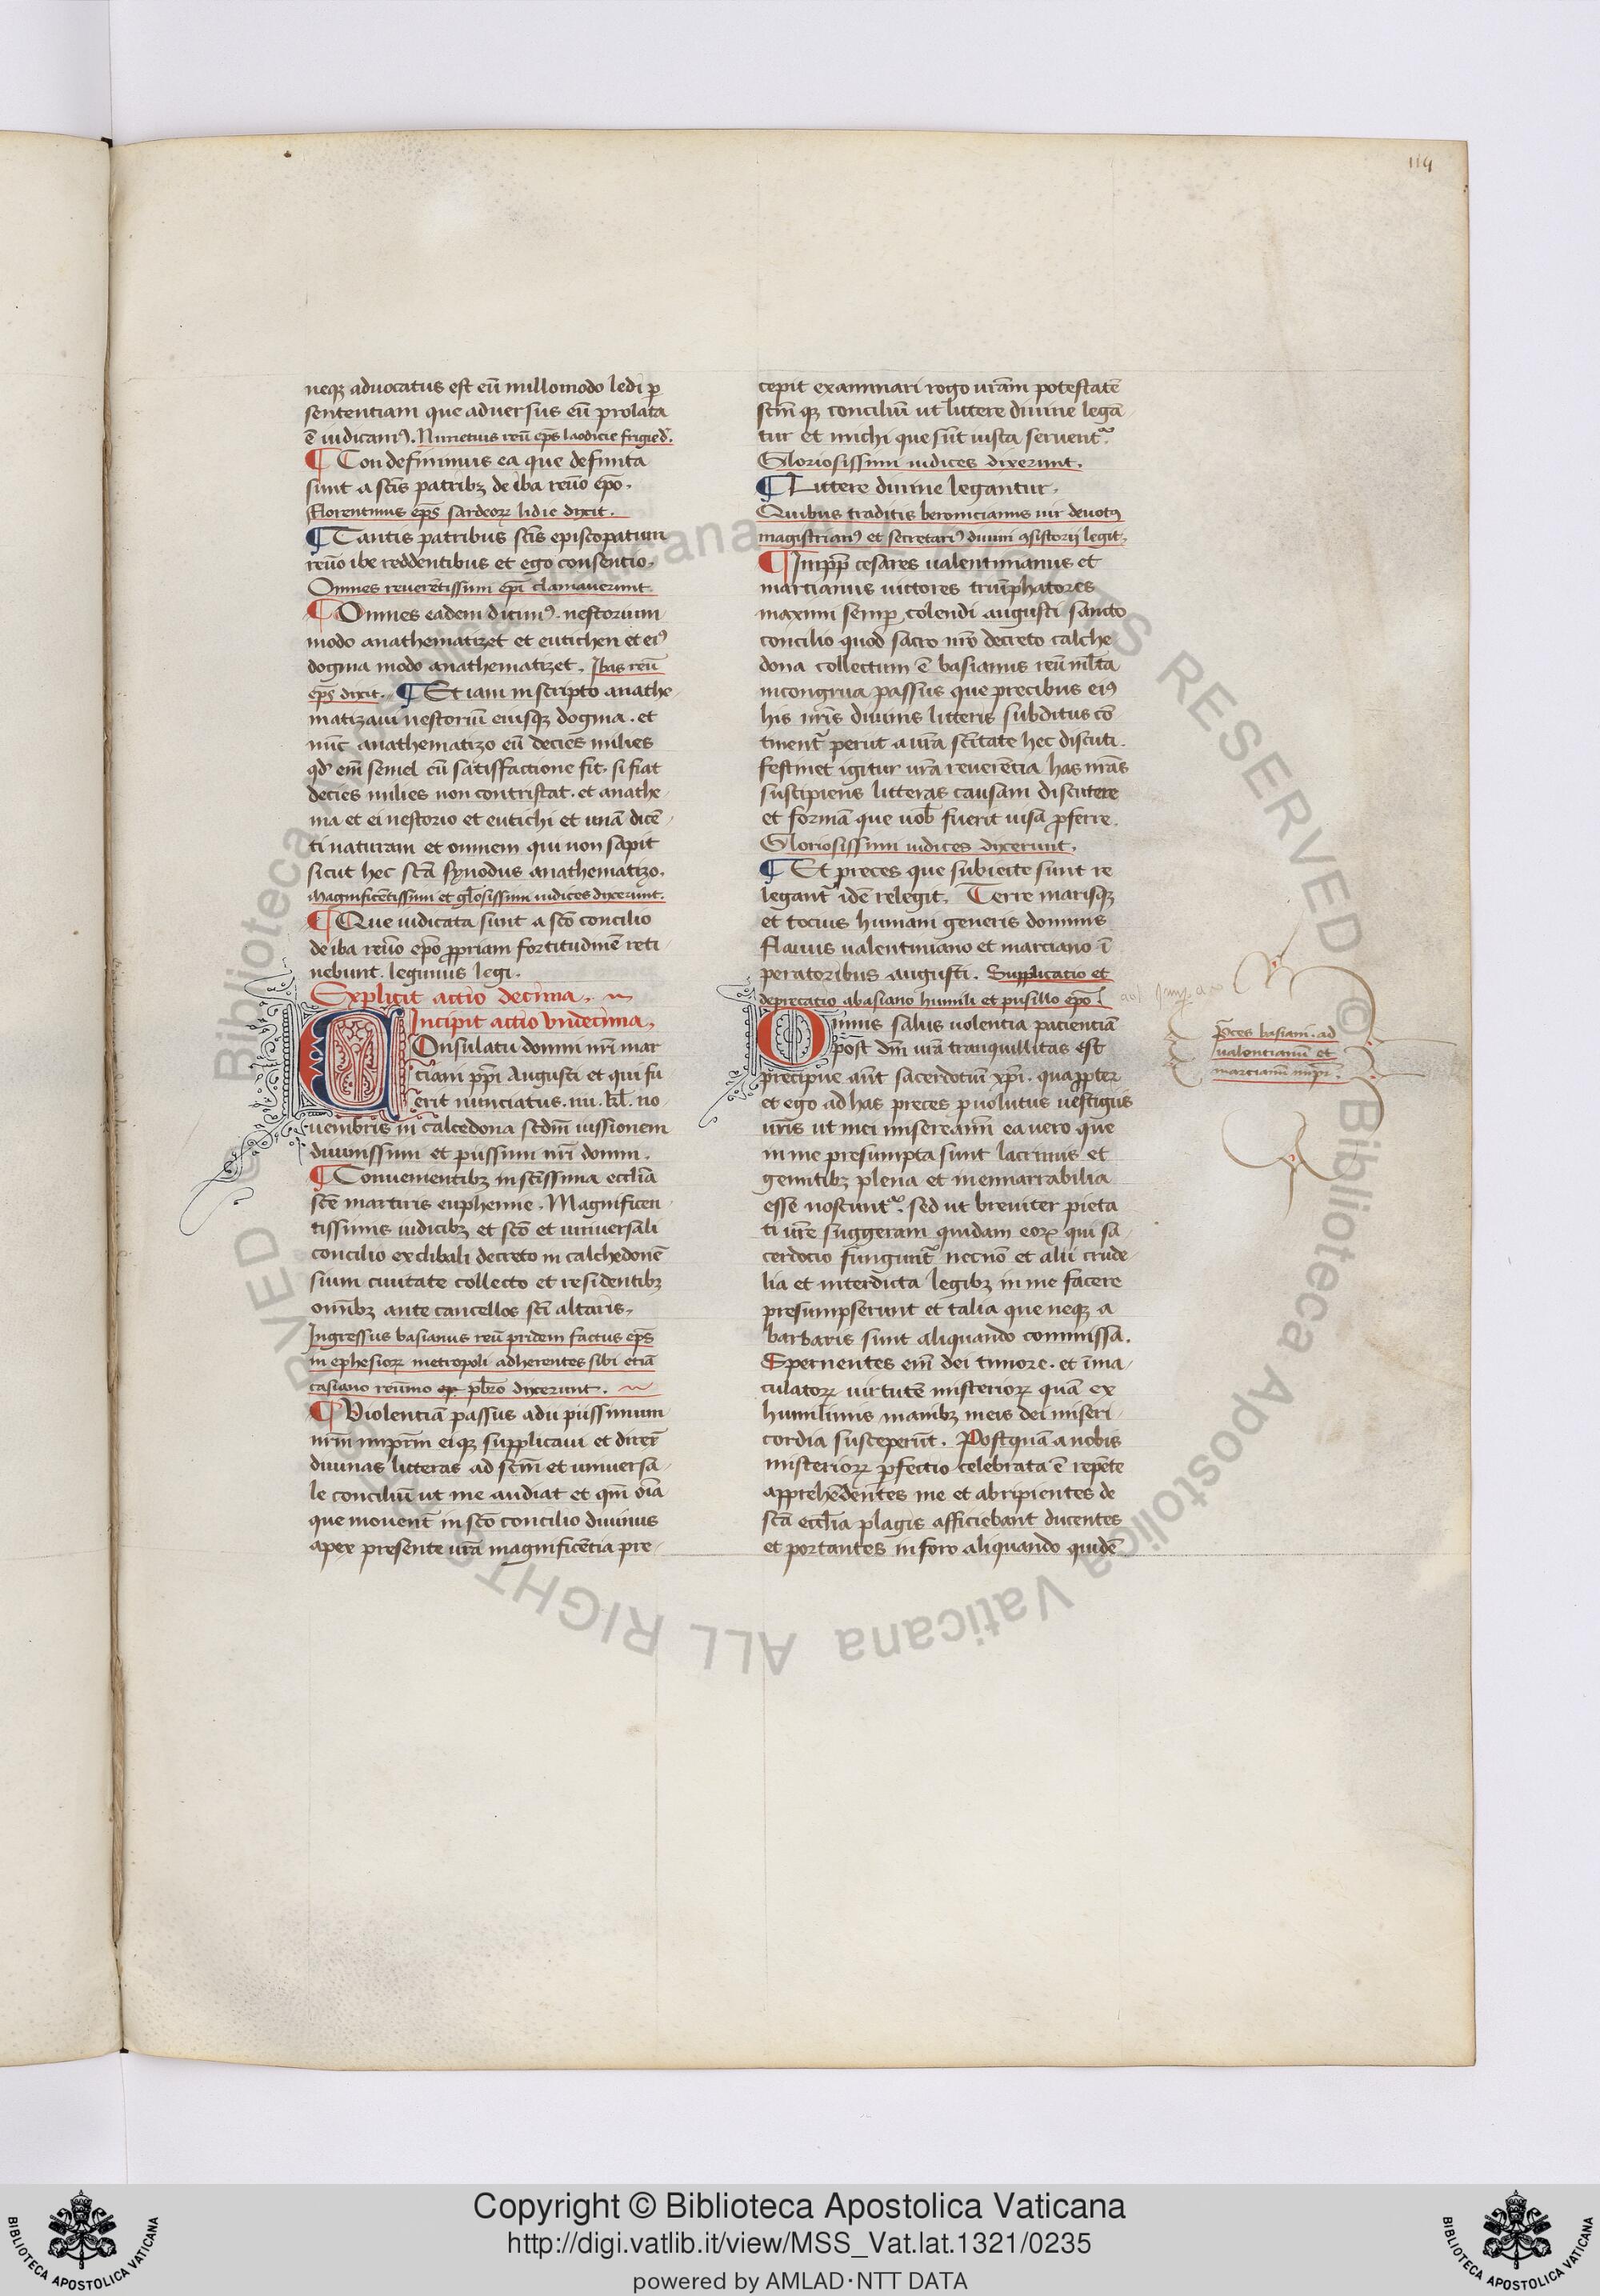 114
neqȝ aduocatus est eū nullomodo ledi ꝑ
sententiam que aduersus eū prolata
ē iudicamꝰ. Nunetius reū ep̄s laodicie frigied̓.
¶ Con definimus ea que definita
sunt a sc̄is patribȝ de iba reūo ep̄o.
Florentinus ep̄s sardeoꝝ lidie dixit.
¶ Tantis patribus sc̄is episcopatum
reūo ibe reddentibus et ego consentio.
Omnes reuerētissimi ep̄i clamauerunt
¶ Omnes eadem dicimꝰ. nestorium
modo anathematizet et eutichen et eiꝰ
dogma modo anathematizet. Ibas reū
ep̄s dixit. ¶ Et iam in scripto anathe-
matizaui nestoriū eiusqȝ dogma. et
nūc anathematizo eū decies milies
qd̓ em̄ semel cū satisfactione fit. si fiat
decies milies non contristat. et anathe-
ma et ei nestorio et eutichi et unā dicē-
ti naturam et omnem qui non sapit
sicut hec sc̄a synodus anathematizo.
Magnificētissimi et gl̄osissimi iudices dixerunt.
¶ Que iudicata sunt a sc̄o concilio
de iba reūo ep̄o ꝓpriam fortitudinē reti
nebunt. legimus legi.
Explicit actio decima.
Incipit actio vndecima.
COnsulatu domini nr̄i mar
ciani pp̄i Augusti et qui fu
erit nunciatus. iiii. kl̄. no-
uembris in calcedona sc̄dm iussionem
diuinissimi et piissimi nr̄i domini.
¶ Conuenientibȝ in sc̄issima eccl̄ia
sc̄e martiris euphemie. Magnificen-
tissimis iudicibȝ et sc̄o et uniuersali
concilio ex clibali decreto in calchedonē
sium ciuitate collecto et residentibȝ
omībȝ ante cancellos sc̄i altaris.
Ingressus basianus reū pridem factus ep̄s
in ephesioꝝ metropoli adherentes sibi etiā
casiano reūmo pb̄ro dixerunt.
¶ Violentiā passus adii piissimum
nr̄m imp̄rm eiqȝ supplicaui et direx̄
diuinas litteras ad sc̄m et uniuersa-
le conciliū ut me audiat et qm̄ oīa
que mouent̄ in sc̄o concilio diuinus
apex presente ur̄a magnificētia pre-
cepit examinari rogo ur̄am potestatē
sc̄m qȝ conciliū ut littere diuine legā-
tur et michi que sūt iusta seruent᷑.
Gloriosissimi iudices dixerunt.
¶ Littere diuine legantur.
Quibus traditis beronicianus uir deuotꝰ
magistrianꝰ et secretariꝰ diuini ꝯsistorij legit.
¶ Impp̄ cesares ualentinianus et
marcianus uictores triūphatores
maximi semꝑ colendi augusti sancto
concilio quod sacro nr̄o decreto calche
dona collectum ē basianus reū ml̄ta
incongrua passus que precibus eiꝰ
his nr̄is diuinis litteris subditus cō-
tinent᷑ petiit a ur̄a sc̄itate hec discuti.
festinet igitur ur̄a reuerētia has nr̄as
suscipiens litteras causam discutere
et formā que uob̄ fuerit uisa ꝓferre.
Gloriosissimi iudices dixerunt.
¶ Et preces que subiecte sunt re
legant᷑ idē relegit. Terre marisqȝ
et tocius humani generis dominis
flauiis ualentiniano et marciano ī
peratoribus augusti. Supplicatio et
deprecatio abasiano humili et pusillo ep̄o
Omnis salus uolentia pacientiā
post dm̄ ur̄a tranquillitas est
precipue aūt sacerdotiū xp̄i. quaꝓpter
et ego ad has preces ꝓuolutus uestigiis
ur̄is ut mei misereamī ea uero que
in me presumpta sunt lacrimis et
gemitibȝ plena et inenarrabilia
esse noscunt᷑. sed ut breuiter pieta
ti ur̄e suggeram quidam eoꝝ qui sa-
cerdotio fungunt᷑ necnō et alii crude-
lia et interdicta legibȝ in me facere
presumpserunt et talia que neqȝ a
barbaris sunt aliquando commissa.
Spernentes em̄ dei timore. et īma-
culatoꝝ uirtutē misterioꝝ quā ex
humilimis manibȝ meis dei miseri-
cordia susceperūt. Postquā a nobis
misterioꝝ ꝑfectio celebrata ē repēte
apprehēdentes me et abripientes de
sc̄a eccl̄ia plagis afficiebant ducentes
et portantes in foro aliquando quidē
p̄ces basiani. ad
valentianū et
marcianū imp̄r.
Copyright © Biblioteca Apostolica Vaticana
http://digi.vatlib.it/view/MSS_Vat.lat.1321/0235
powered by AMLAD·NTT DATA
BIBLIOTECA APOSTOLICA VATICANA
BIBLIOTECA APOSTOLICA VATICANA
© Biblioteca Apostolica Vaticana ALL RIGHTS RESERVED © Biblioteca Apostolica Vaticana ALL RIGHTS RESERVED